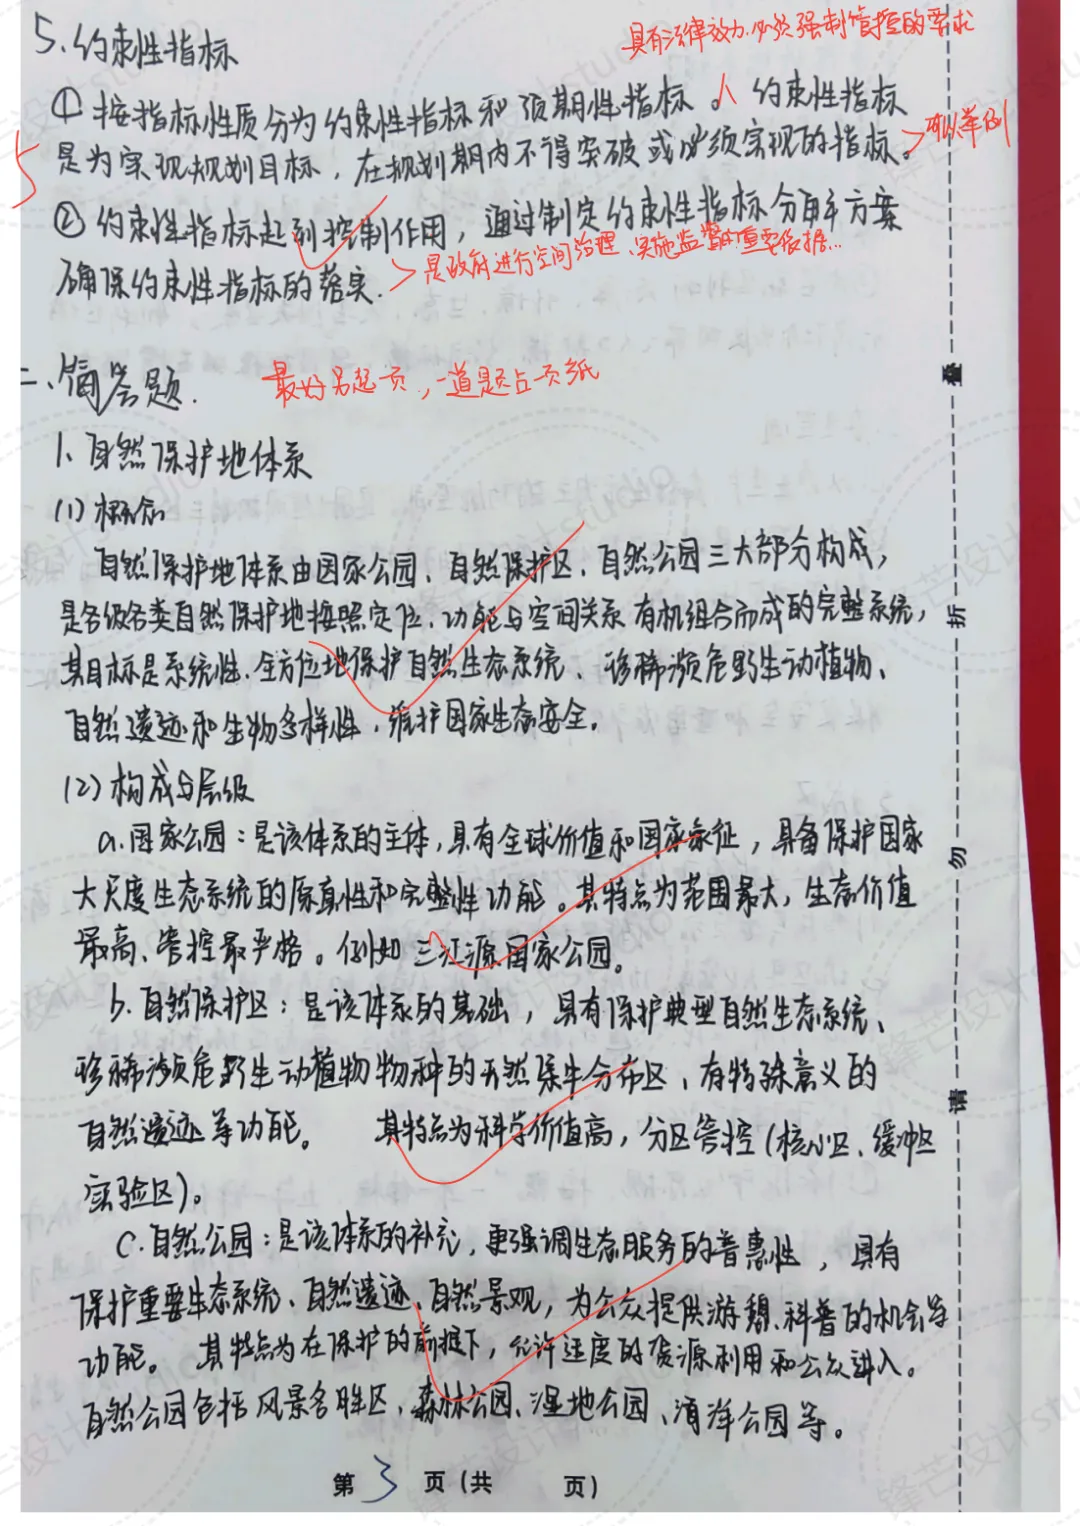 5、约束性指标
具有法律效力、必须强制管控的要求
① 按指标性质分为约束性指标和预期性指标。约束性指标
是为实现规划目标，在规划期内不得突破或必须实现的指标。
可以举例
5
② 约束性指标起到控制作用，通过制定约束性指标分解方案
确保约束性指标的落实.
是政府进行空间治理、实施监督的重要依据...
二、简答题.
最好另起一页，一道题占一页纸
1、自然保护地体系
(1) 概念
自然保护地体系由国家公园、自然保护区、自然公园三大部分构成，
是各级各类自然保护地按照定位、功能与空间关系有机组合而成的完整系统，
其目标是系统性、全方位地保护自然生态系统、珍稀濒危野生动植物、
自然遗迹和生物多样性，维护国家生态安全.
(2) 构成与层级
a.国家公园：是该体系的主体，具有全球价值和国家象征，具备保护国家
大尺度生态系统的原真性和完整性功能。其特点为范围最大，生态价值
最高、管控最严格。例如三江源国家公园。
b.自然保护区：是该体系的基础，具有保护典型自然生态系统、
珍稀濒危野生动植物物种的天然集中分布区、有特殊意义的
自然遗迹等功能。 其特点为科学价值高，分区管控(核心区、缓冲区
实验区)。
C.自然公园：是该体系的补充，更强调生态服务的普惠性，具有
保护重要生态系统、自然遗迹、自然景观，为公众提供游憩、科普的机会等
功能。 其特点为在保护的前提下，允许适度的资源利用和公众进入。
自然公园包括风景名胜区、森林公园、湿地公园、海洋公园等。
第 3 页(共 页)
叠
折
勿
请